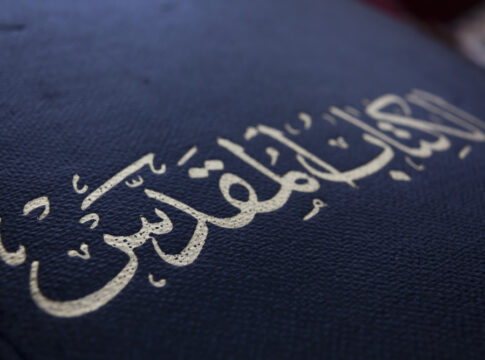 الكِتَابُ المُقَدَّسُ